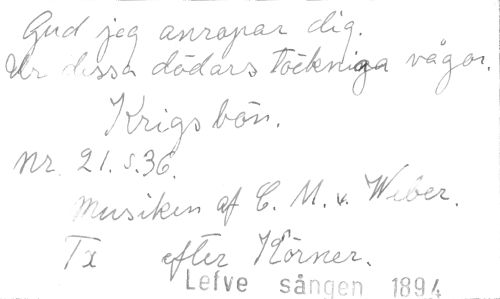 Gud jag anropar dig.
Ur dessa dödars töckniga vågor.
Krigsbön.
Nr. 21. s. 36.
Musiken af C. M. v. Weber.
Tx efter Körner.
Lefve sången 1894